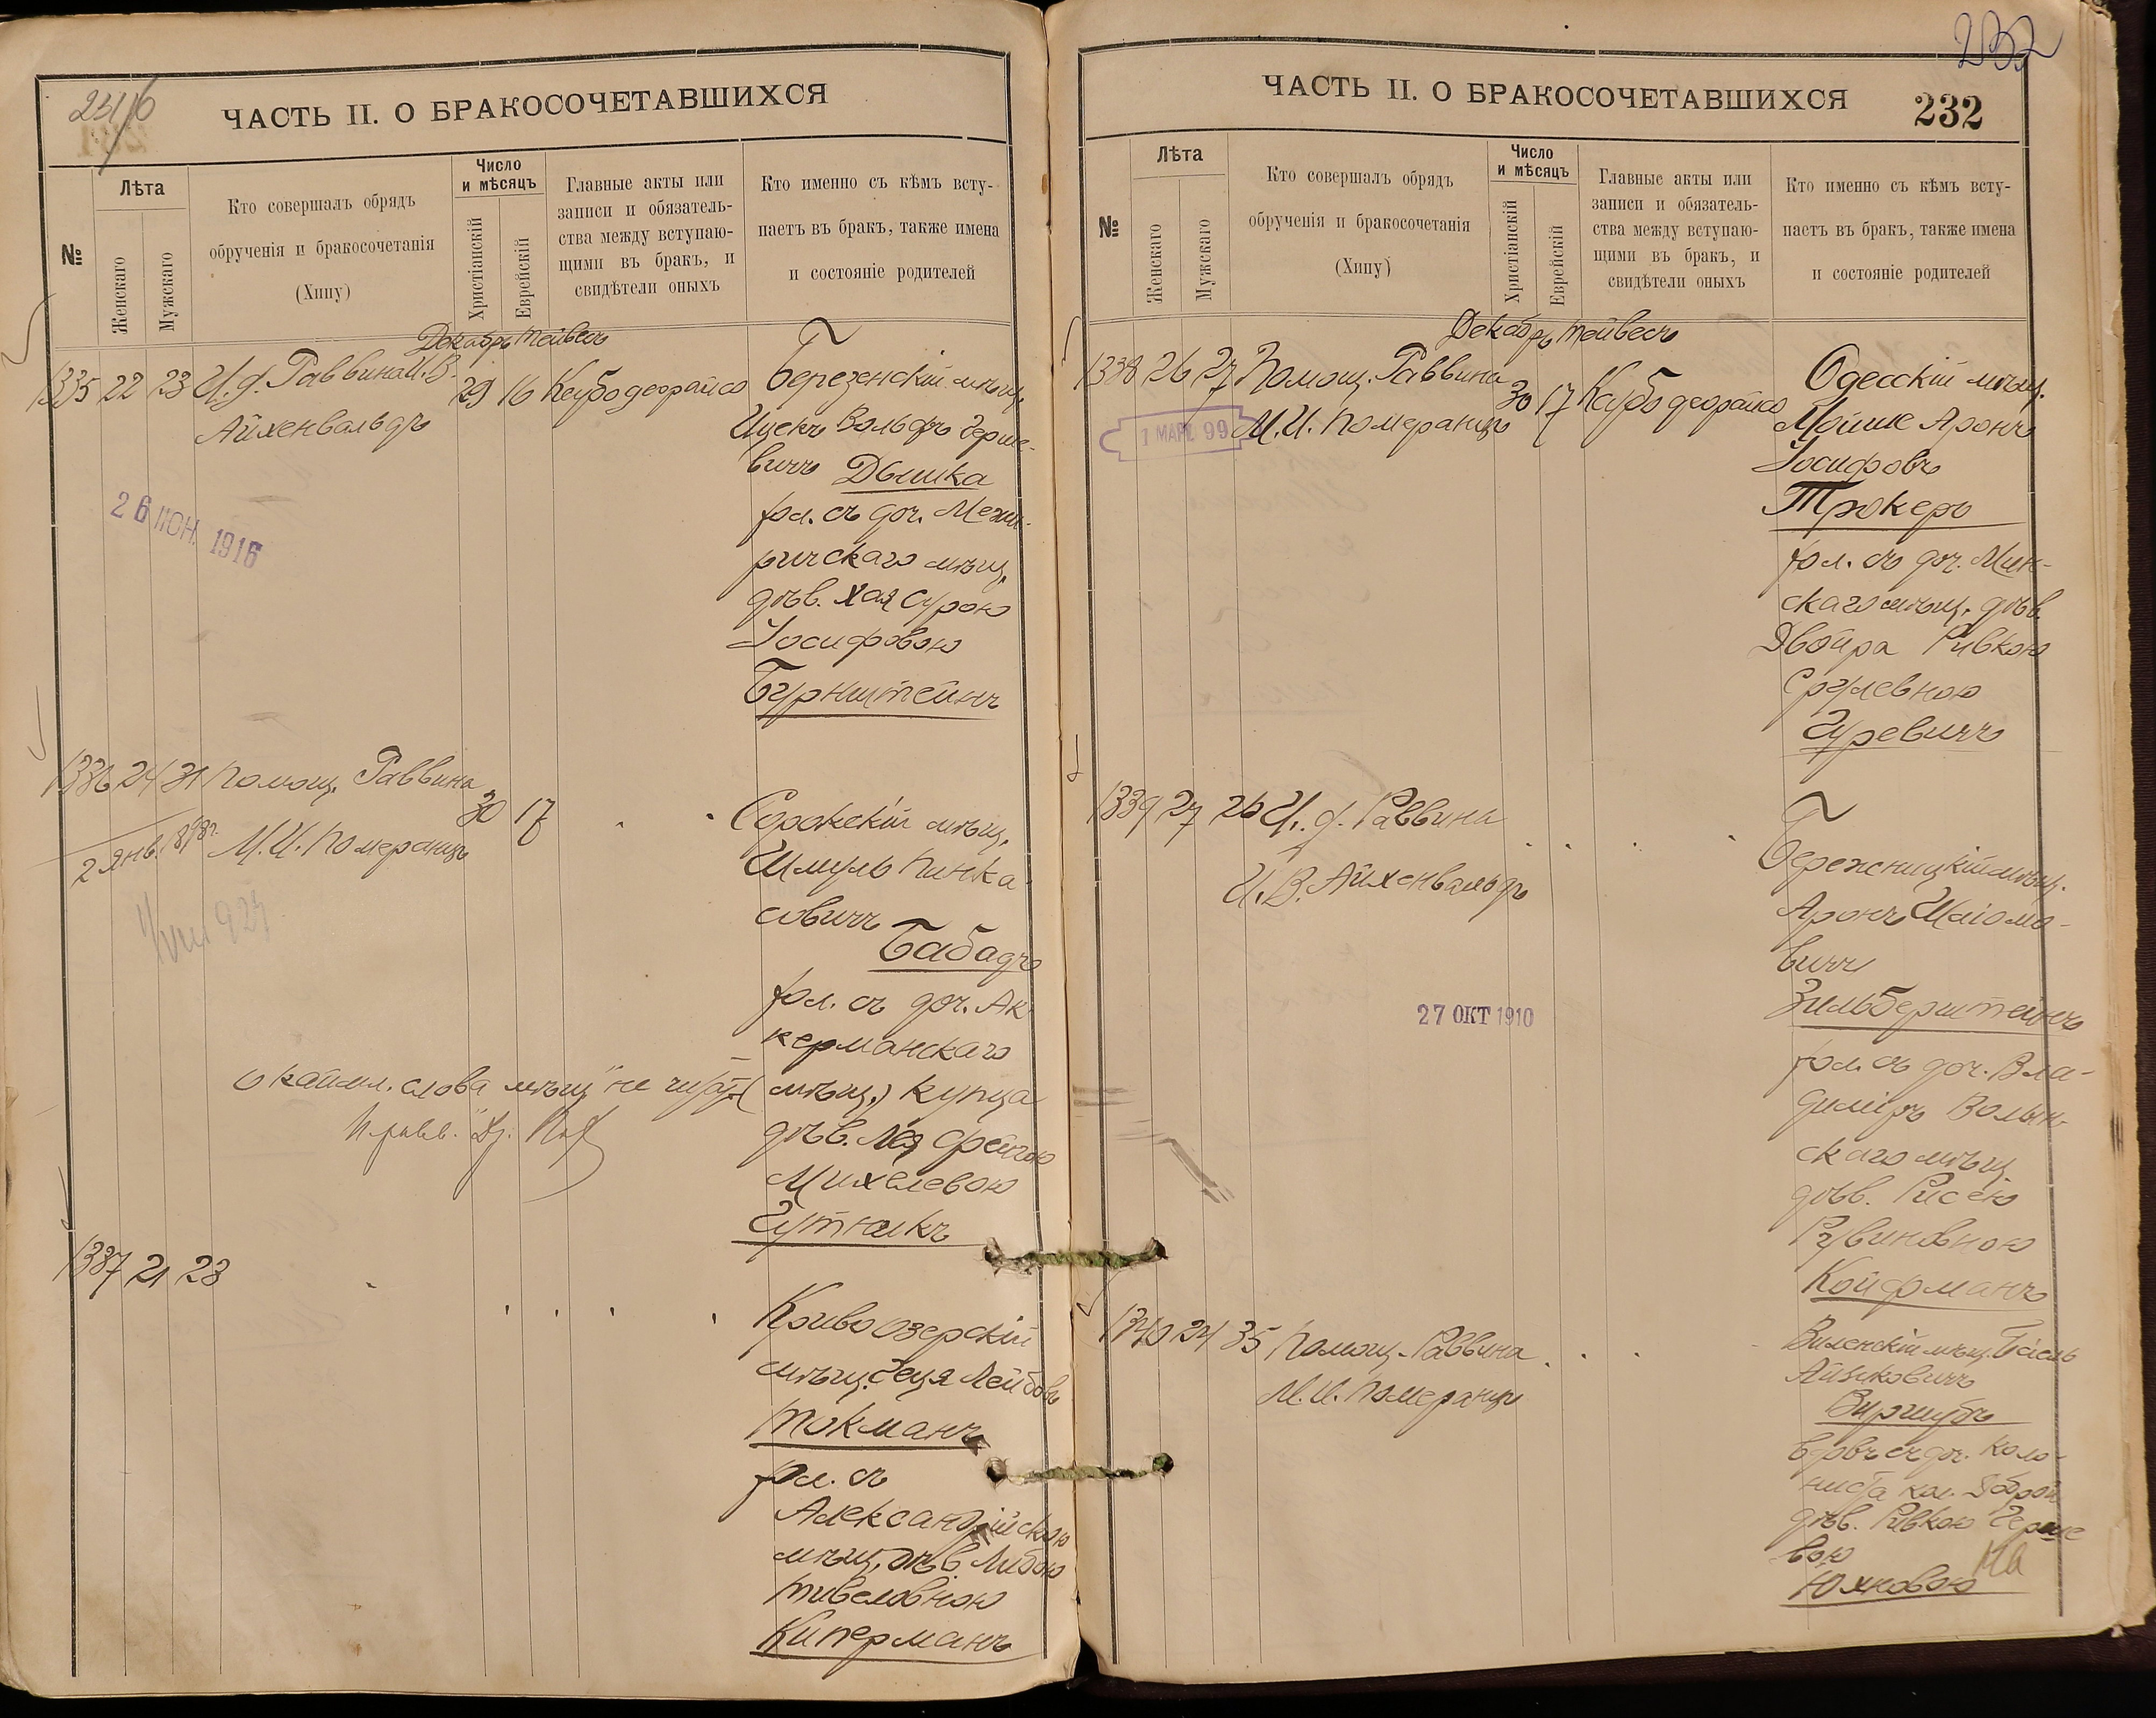 231/0
ЧАСТЬ II. О БРАКОСОЧЕТАВШИХСЯ
№
Лѣта
Женскаго
Мужскаго
Кто совершалъ обрядъ
обрученія и бракосочетанія
(Хипу)
Число
и мѣсяцъ
Христіанскій
Еврейскій
Главные акты или
записи и обязатель-
ства между вступаю-
щими въ бракъ, и
свидѣтели оныхъ
Кто именно съ кѣмъ всту-
паетъ въ бракъ, также имена
и состояніе родителей
Декабрь Тейвесъ
1335 22 23 И. д. Раввина И. В.
Айхенвальдъ
29 16 Кеубо деорайсо
Березенскій мѣщ.
Ицекъ Вольфъ Герше-
вичъ Дышка
хол. съ доч. Межи-
ричскаго мѣщ.
дѣв. Хая Сурою
Іосифовою
Бурнштейнъ
26 ІЮН. 1916
1336 24 31 Помощ. Раввина
М. И. Померанцъ
30 17
2 янв. 1898 г.
Сорокскій мѣщ.
Шмуль Пинка-
совичъ
Бабадъ
хол. съ доч. Ак-
керманскаго
(мѣщ.) купца
дѣв. Лея Фейгою
Михелевою
Гутникъ
окаймл. слова „мѣщ" не чит.
1337 21 23
Кривоозерскій
мѣщ. Геця Лейбовъ
Токманъ
хол. съ
Александрійскою
мѣщ. дѣв. Либою
Тивеловною
Киперманъ
232
ЧАСТЬ II. О БРАКОСОЧЕТАВШИХСЯ
232
№
Лѣта
Женскаго
Мужскаго
Кто совершалъ обрядъ
обрученія и бракосочетанія
(Хипу)
Число
и мѣсяцъ
Христіанскій
Еврейскій
Главные акты или
записи и обязатель-
ства между вступаю-
щими въ бракъ, и
свидѣтели оныхъ
Кто именно съ кѣмъ всту-
паетъ въ бракъ, также имена
и состояніе родителей
Декабрь Тейвесъ
1338 26 27 Помощ. Раввина
М. И. Померанцъ
30 17 Кеубо деорайсо
1 МАР. 99
Одесскій мѣщ.
Мошке Аронъ
Іосифовъ
Трокеръ
хол. съ доч. Мин-
скаго мѣщ. дѣв.
Двойра Ривкою
Срулевною
Гуревичъ
1339 27 26 И. д. Раввина
И. В. Айхенвальдъ
27 ОКТ 1910
Бережницкій мѣщ.
Аронъ Шаіомо-
вичъ
Зильберштейнъ
хол. съ доч. Вла-
диміръ Волын-
скаго мѣщ.
дѣв. Рисею
Рувиновною
Койфманъ
1340 24 35 Помощ. Раввина
М. И. Померанцъ
Виленскій мѣщ.
Айзиковичъ
Виршубъ
вдовъ съ доч. коло-
ниста кол. Доброй
дѣв. Ривкою Герше
вою
Юхновою